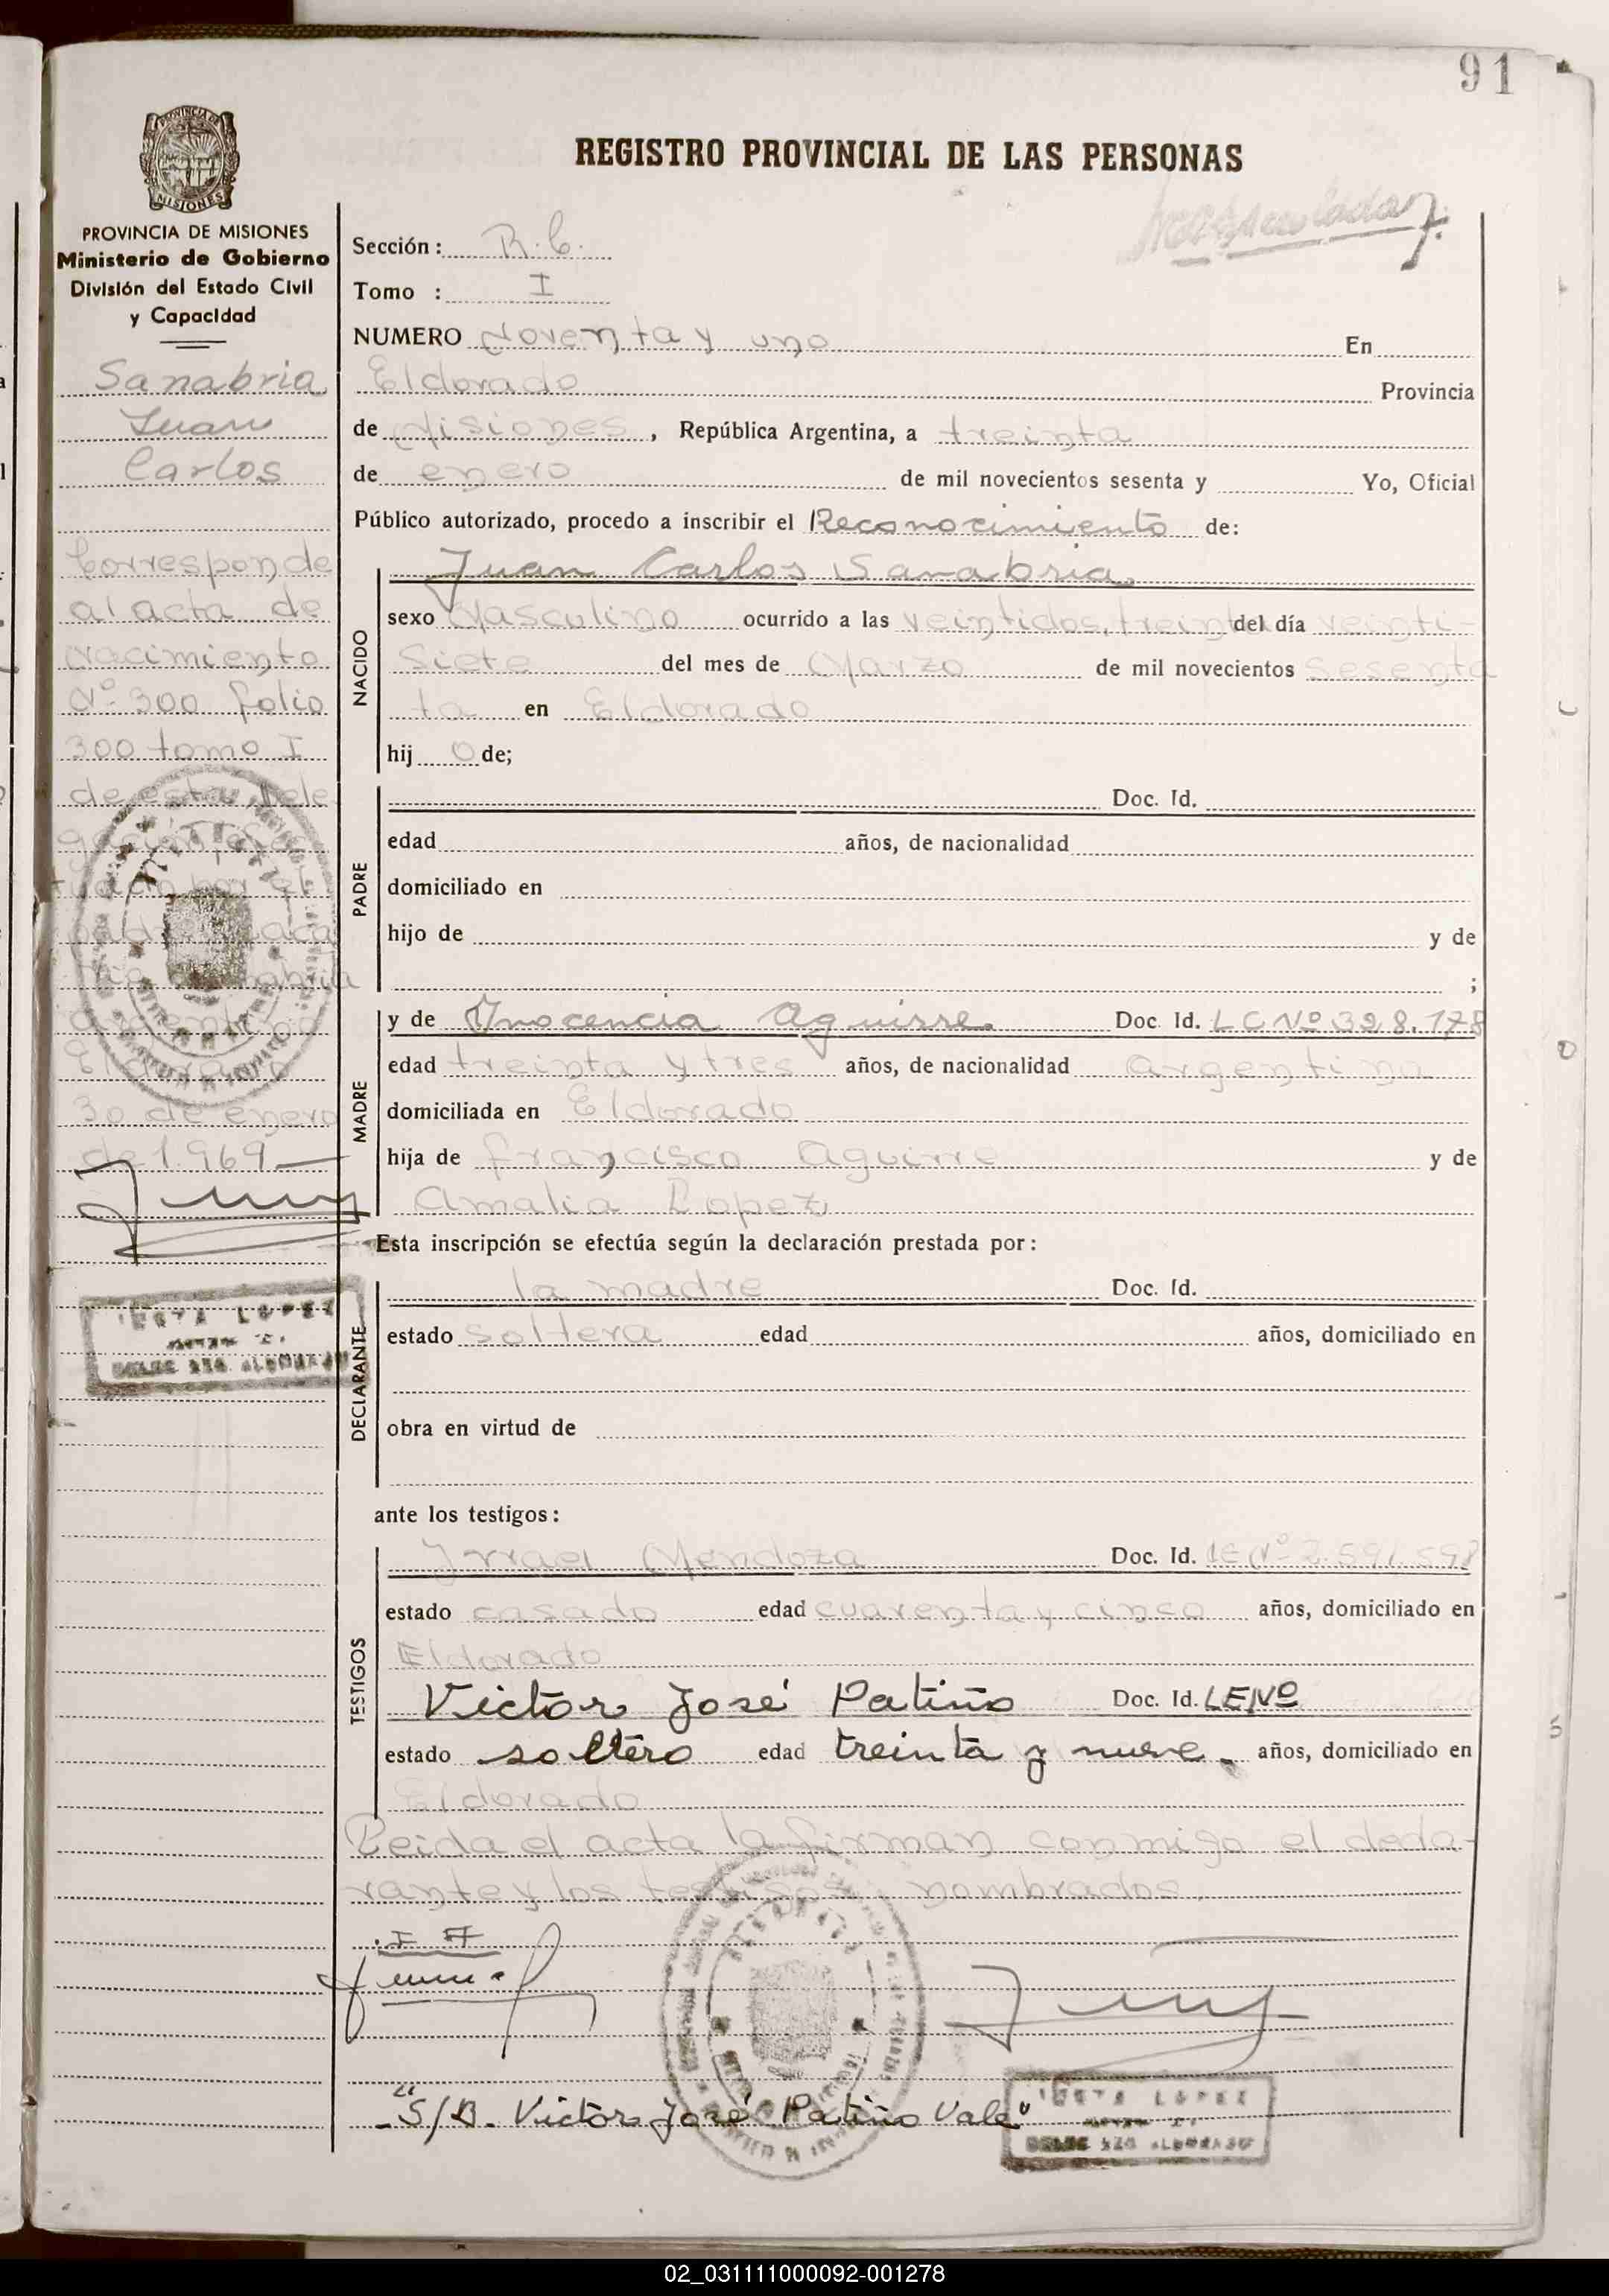 91
REGISTRO PROVINCIAL DE LAS PERSONAS
PROVINCIA DE MISIONES
Ministerio de Gobierno
División del Estado Civil
y Capacidad
Sanabria
Juan
Carlos
Corresponde
al acta de
nacimiento
Nº 300 folio
300 tomo I
de esta Dele
30 de enero
de 1969
Sección: R.C.
Tomo : I
NUMERO Noventa y uno En
Eldorado Provincia
de Misiones, República Argentina, a treinta
de enero de mil novecientos sesenta y Yo, Oficial
Público autorizado, procedo a inscribir el Reconocimiento de:
NACIDO
Juan Carlos Sanabria
sexo Masculino ocurrido a las veintidos, treinta del día veinti-
siete del mes de Marzo de mil novecientos sesenta
ta en Eldorado
hij o de;
PADRE
Doc. Id.
edad años, de nacionalidad
domiciliado en
hijo de y de
;
MADRE
y de Inocencia Aguirre Doc. Id. LC Nº 328.178
edad treinta y tres años, de nacionalidad argentina
domiciliada en Eldorado
hija de francisco Aguirre y de
Amalia Lopez
Esta inscripción se efectúa según la declaración prestada por:
DECLARANTE
la madre Doc. Id.
estado soltera edad años, domiciliado en
obra en virtud de
ante los testigos:
TESTIGOS
Yrrael Mendoza Doc. Id. LE Nº 2.591.598
estado casado edad cuarenta y cinco años, domiciliado en
Eldorado
Victor José Patiño Doc. Id. LE Nº
estado soltero edad treinta y nueve años, domiciliado en
Eldorado
Leida el acta la firman conmigo el decla-
rante y los testigos nombrados
"S/B. Victor José Patiño Vale"
LOPEZ
02_031111000092-001278